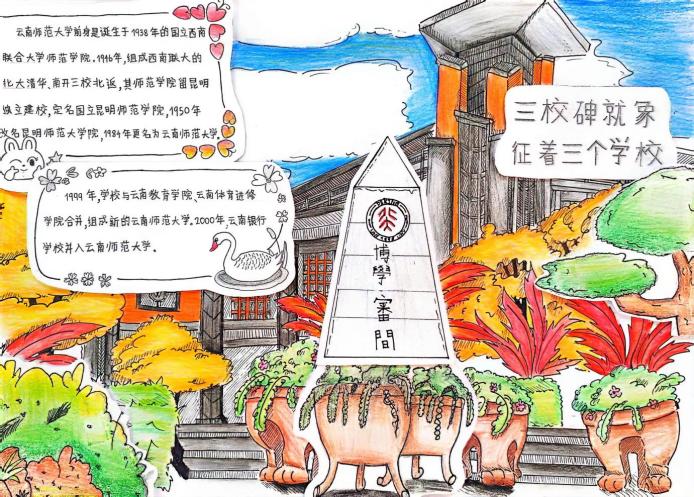 云南师范大学前身是诞生于1938年的国立西南
联合大学师范学院.1946年,组成西南联大的
北大清华、南开三校北返,其师范学院留昆明
独立建校,定名国立昆明师范学院,1950年
改名昆明师范大学院,1984年更名为云南师范大学.
1999年,学校与云南教育学院、云南体育进修
学院合并,组成新的云南师范大学.2000年,云南银行
学校并入云南师范大学。
三校碑就象
征着三个学校
博學·審問